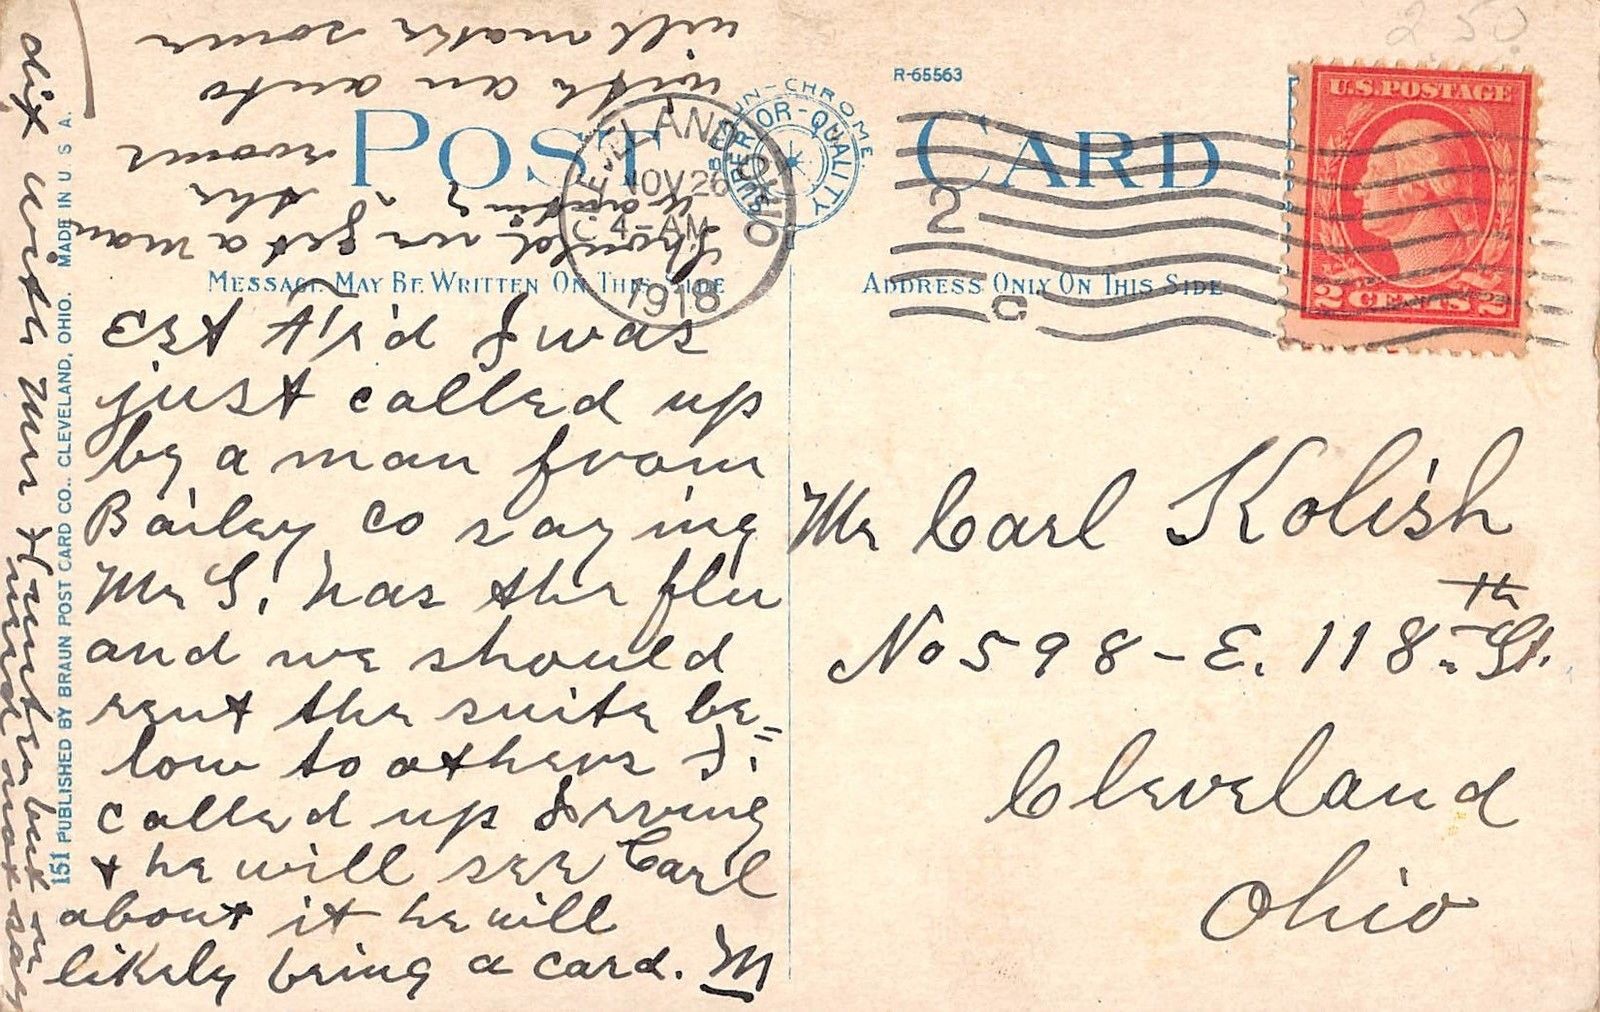 2.50
R-65563
POST CARD
BRAUN-CHROME
SUPERIOR-QUALITY
CLEVELAND OHIO
NOV 26
4-AM
1918
2
C
U.S. POSTAGE
2 CENTS 2
MESSAGE MAY BE WRITTEN ON THIS SIDE
ADDRESS ONLY ON THIS SIDE
Est Fr'd I was
just called up
by a man from
Bailey Co saying
Mr S. has the flu
and we should
rent the suite be-
low to others I.
called up Irving
+ he will see Carl
about it he will
likely bring a card. M
Should we get a man
wanting the
rooms
with an auto
will make some
dix with Mrs Hunter but we
need not say
Mr Carl Kolish
No 598 - E. 118th St.
Cleveland
Ohio
151 PUBLISHED BY BRAUN POST CARD CO., CLEVELAND, OHIO. MADE IN U. S. A.